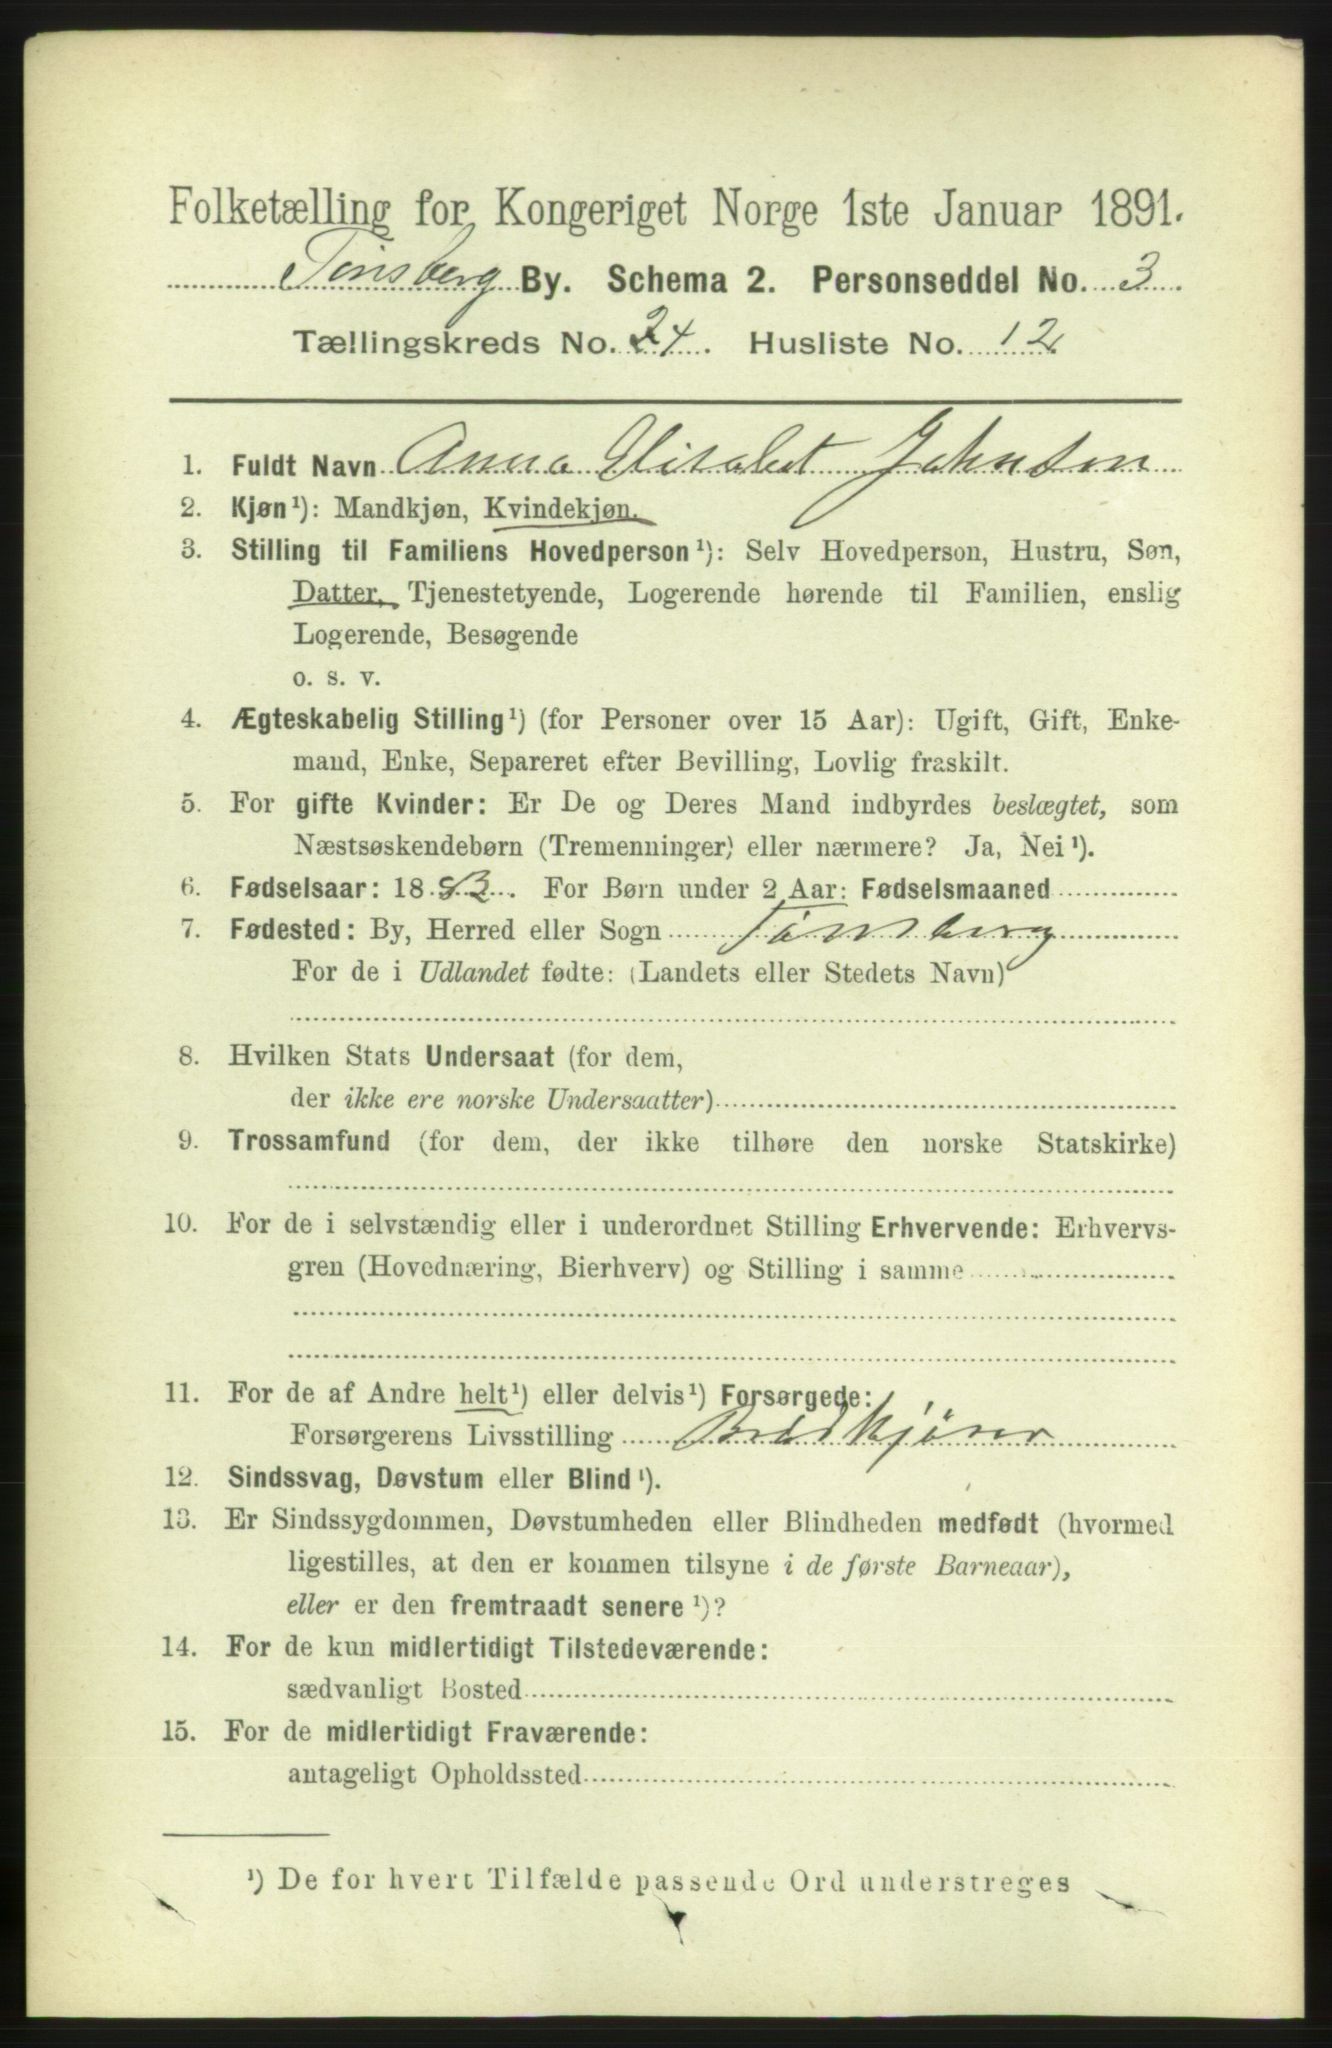 Folketælling for Kongeriget Norge 1ste Januar 1891.
Tønsberg By. Schema 2. Personseddel No. 3
Tællingskreds No. 24. Husliste No. 12
1. Fuldt Navn Anna Elisabet Johnsen
2. Kjøn¹): Mandkjøn, Kvindekjøn.
3. Stilling til Familiens Hovedperson¹): Selv Hovedperson, Hustru, Søn,
Datter, Tjenestetyende, Logerende hørende til Familien, enslig
Logerende, Besøgende
o. s. v.
4. Ægteskabelig Stilling¹) (for Personer over 15 Aar): Ugift, Gift, Enke-
mand, Enke, Separeret efter Bevilling, Lovlig fraskilt.
5. For gifte Kvinder: Er De og Deres Mand indbyrdes beslægtet, som
Næstsøskendebørn (Tremenninger) eller nærmere? Ja, Nei¹).
6. Fødselsaar: 18 . For Børn under 2 Aar: Fødselsmaaned
7. Fødested: By, Herred eller Sogn Tønsberg
For de i Udlandet fødte: (Landets eller Stedets Navn)
8. Hvilken Stats Undersaat (for dem,
der ikke ere norske Undersaatter)
9. Trossamfund (for dem, der ikke tilhøre den norske Statskirke)
10. For de i selvstændig eller i underordnet Stilling Erhvervende: Erhvervs-
gren (Hovednæring, Bierhverv) og Stilling i samme
11. For de af Andre helt¹) eller delvis¹) Forsørgede:
Forsørgerens Livsstilling
12. Sindssvag, Døvstum eller Blind¹).
13. Er Sindssygdommen, Døvstumheden eller Blindheden medfødt (hvormed
ligestilles, at den er kommen tilsyne i de første Barneaar),
eller er den fremtraadt senere¹)?
14. For de kun midlertidigt Tilstedeværende:
sædvanligt Bosted
15. For de midlertidigt Fraværende:
antageligt Opholdssted
¹) De for hvert Tilfælde passende Ord understreges